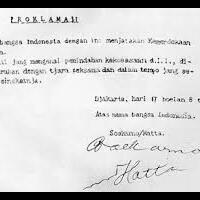 P R O K L A M A S I
bangsa Indonesia dengan ini menjatakan Kemerdekaan
jang mengenai pemindahan kekoeasaan d.l.l., di-
dengan tjara seksama dan dalam tempo jang se-
singkatnja.
Djakarta, hari 17 boelan 8 t
Atas nama bangsa Indonesia.
Soekarno/Hatta.
Soekarno
Hatta